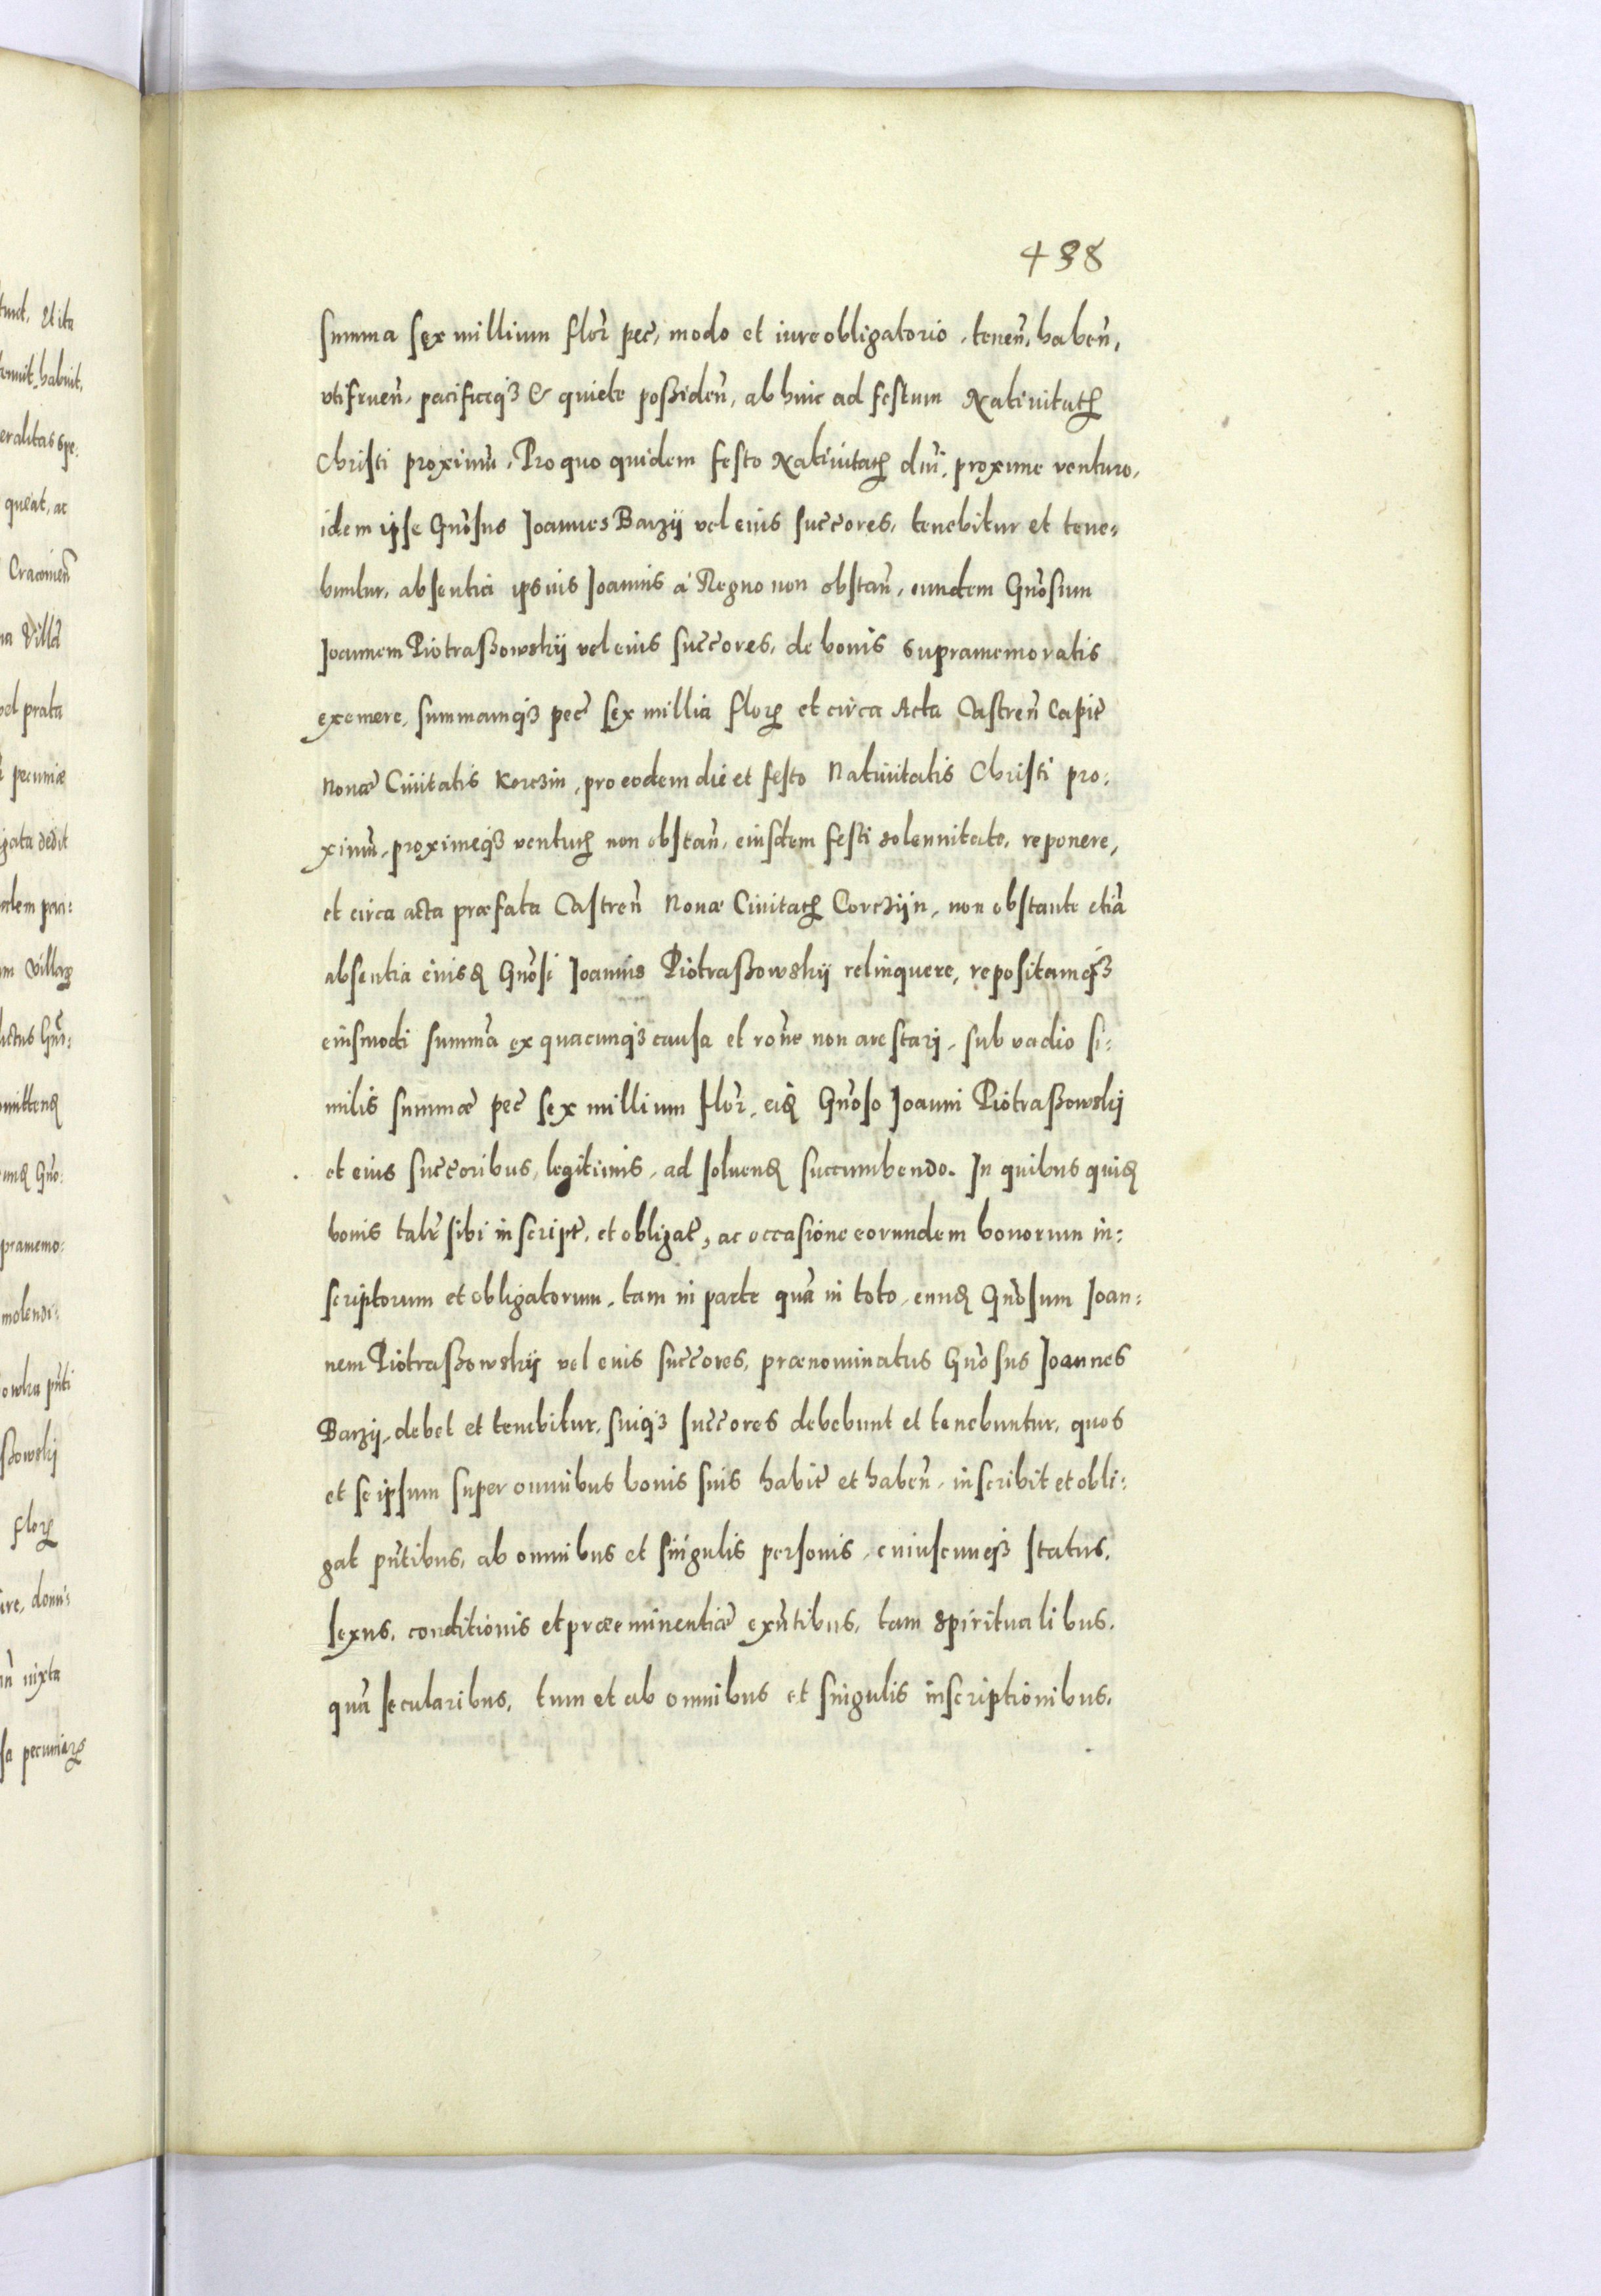 438
summa sex millium flor̃ pec̃, modo et iure obligatorio, tenen̄, haben̄,
vtifruen̄, pacificeqꝫ & quiete possiden̄, ab huic ad festum Natiuitatꝭ
Christi proximū. Pro quo quidem festo Natiuitatꝭ dn̄i, proxime venturo,
idem ipse Gn̄osus Joannes Barzij vel eius succ̄ores, tenebitur et tene:
buntur, absentia ipsius Joannis à Regno non obstan̄, eundem Gn̄osum
Joannem Piotraßowskij vel eius succ̄ores, de bonis supramemoratis
exemere, summamqꝫ pec̃ sex millia floꝝ et circa Acta Castren̄ Capit̃
Nouæ Ciuitatis Korczin, pro eodem die et festo Natiuitatis Christi pro:
ximū, proximeqꝫ venturꝭ non obstan̄, eiusdem festi solennitate, reponere,
et circa acta præfata Castren̄ Nouæ Ciuitatꝭ Corczijn, non obstante etiā
absentia eiusꝺ Gn̄osi Joannis Piotraßowskij relinquere, repositamqꝫ
eiusmodi summā ex quacunqꝫ causa et ro̅ne non arestarj, sub vadio si:
milis summæ pec̃ sex millium flor̃, eiꝺ Gn̄oso Joanni Piotraßowskj
et eius succ̄oribus, legitimis, ad soluenꝺ succumbendo. In quibus quiꝺ
bonis talr̃ sibi inscript̃, et obligat̃, ac occasione eorundem bonorum in:
scriptorum et obligatorum, tam in parte quā in toto, eunꝺ Gn̄osum Joan:
nem Piotraßowskij vel eius succ̄ores, prænominatus Gn̄osus Joannes
Barzij, debet et tenebitur, suiqꝫ succ̄ores debebunt et tenebuntur, quos
et se ipsum super omnibus bonis suis habit̃ et haben̄, inscribit et obli:
gat pn̄tibus, ab omnibus et singulis personis, cuiuscunqꝫ status,
sexus, conditionis et præeminentiæ exn̄tibus, tam spiritualibus,
quā secularibus, tum et ab omnibus et singulis inscriptionibus,